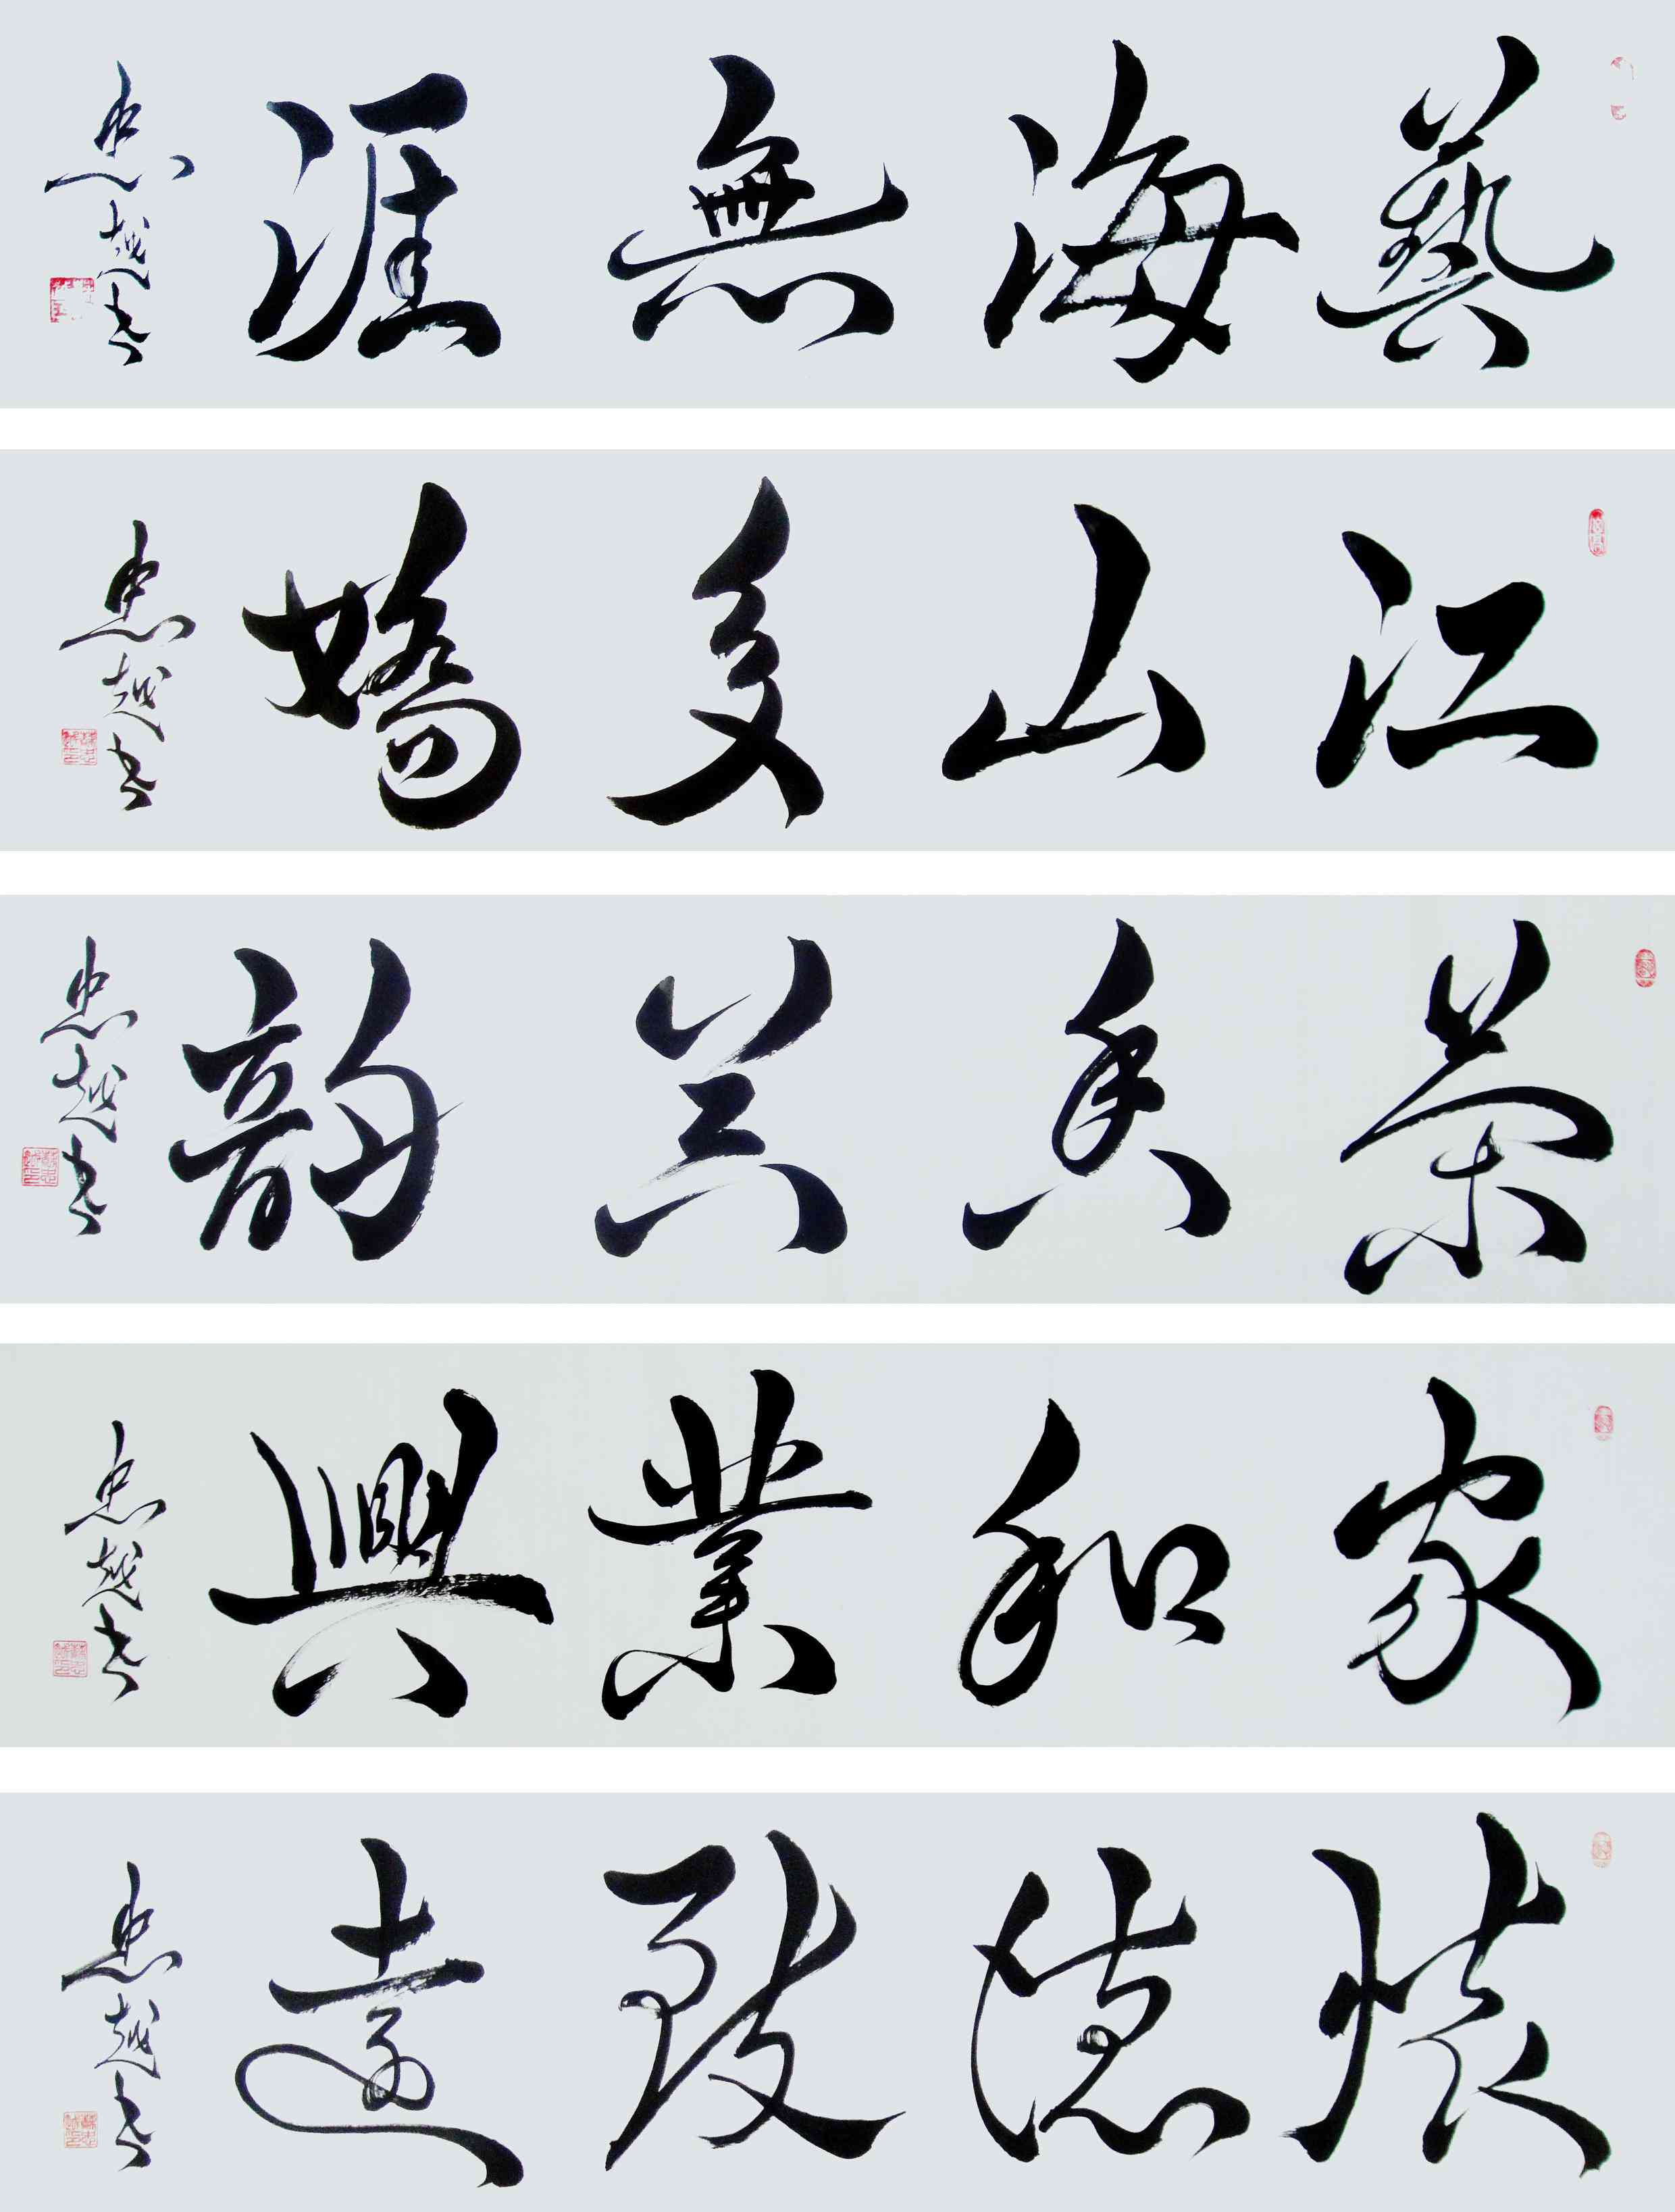 藝海無涯 忠越書
江山多嬌 忠越書
茶香美韵 忠越書
家和業興 忠越書
懷德致遠 忠越書